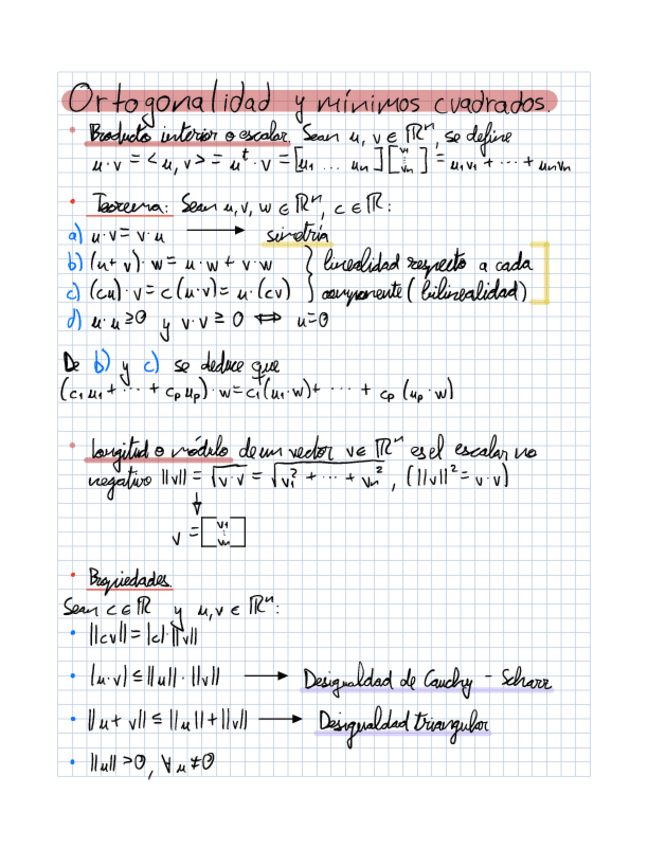 Ortogonalidad y mínimos cuadrados.
• Producto interior o escalar. Sean u, v ∈ ℝⁿ, se define
u · v = <u, v> = uᵗ · v = [u₁ ... uₙ] [v₁ ⋮ vₙ] = u₁v₁ + ··· + uₙvₙ
• Teorema: Sean u, v, w ∈ ℝⁿ, c ∈ ℝ:
a) u · v = v · u → simetría
b) (u + v) · w = u · w + v · w } linealidad respecto a cada
c) (cu) · v = c(u · v) = u · (cv) } componente (bilinealidad)
d) u · u ≥ 0 y v · v ≥ 0 ⟺ u = 0
De b) y c) se deduce que
(c₁u₁ + ··· + cₚuₚ) · w = c₁(u₁ · w) + ··· + cₚ(uₚ · w)
• Longitud o módulo de un vector v ∈ ℝⁿ es el escalar no
negativo ||v|| = √(v · v) = √(v₁² + ··· + vₙ²), (||v||² = v · v)
↓
v = [v₁ ⋮ vₙ]
• Propiedades.
Sean c ∈ ℝ y u, v ∈ ℝⁿ:
• ||cv|| = |c| · ||v||
• |u · v| ≤ ||u|| · ||v|| → Desigualdad de Cauchy - Scharz
• ||u + v|| ≤ ||u|| + ||v|| → Desigualdad triangular
• ||u|| > 0, ∀ u ≠ 0